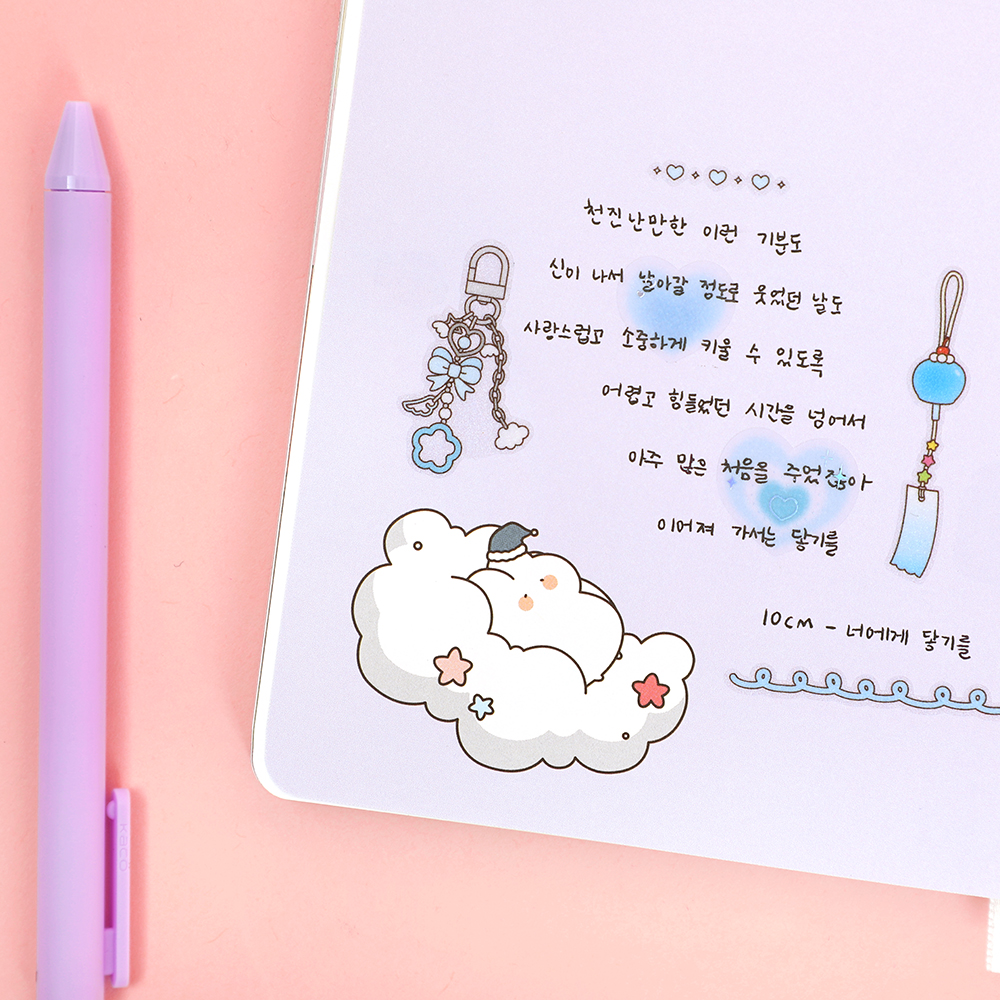 천진난만한 이런 기분도
신이 나서 날아갈 정도로 웃었던 날도
사랑스럽고 소중하게 키울 수 있도록
어렵고 힘들었던 시간을 넘어서
아주 많은 처음을 주었잖아
이어져 가서는 닿기를
10CM - 너에게 닿기를
KACO